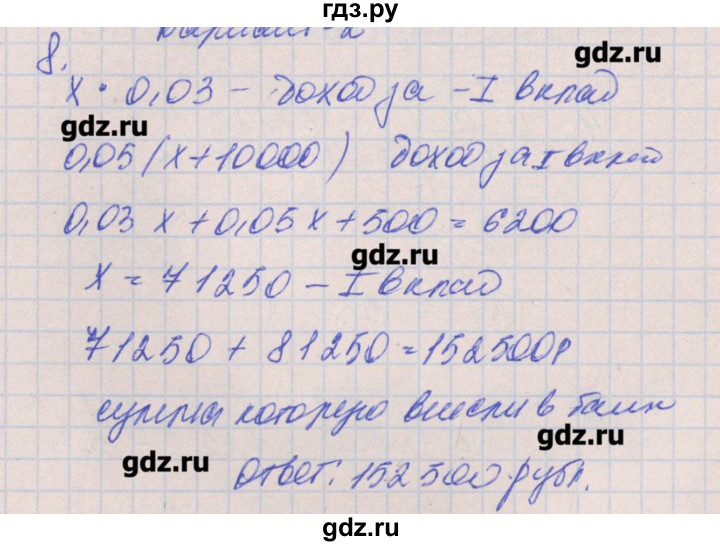 гдз.ру
Вариант-2
8.
gdz.ru
x · 0,03 – доход за – I вклад
gdz.ru
0,05 (x+10000) доход за I вклад
0,03 x + 0,05 x + 500 = 6200
gdz.ru
x = 71250 – I вклад
71250 + 81250 = 152500р
сумма которую внесли в банк
gdz.ru
gdz.ru
ответ: 152 500 рубл.
gdz.ru